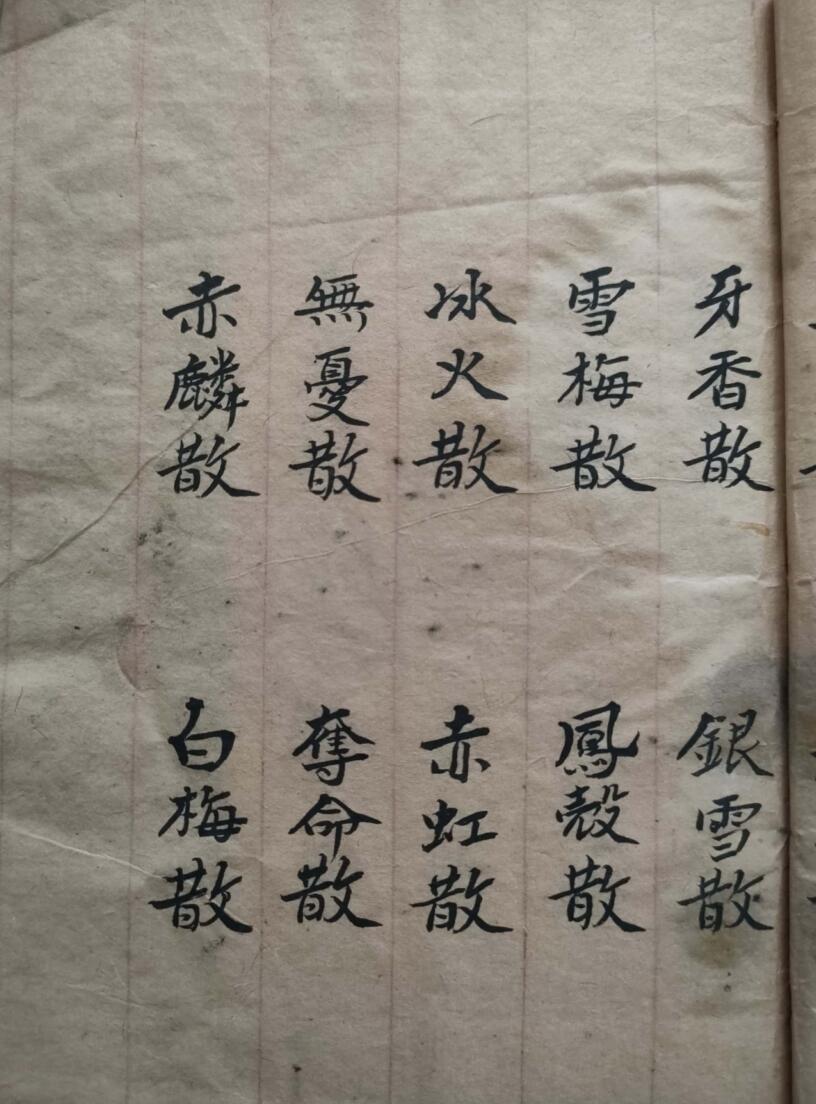 牙香散 銀雪散
雪梅散 鳳殼散
冰火散 赤虹散
無憂散 奪命散
赤麟散 白梅散